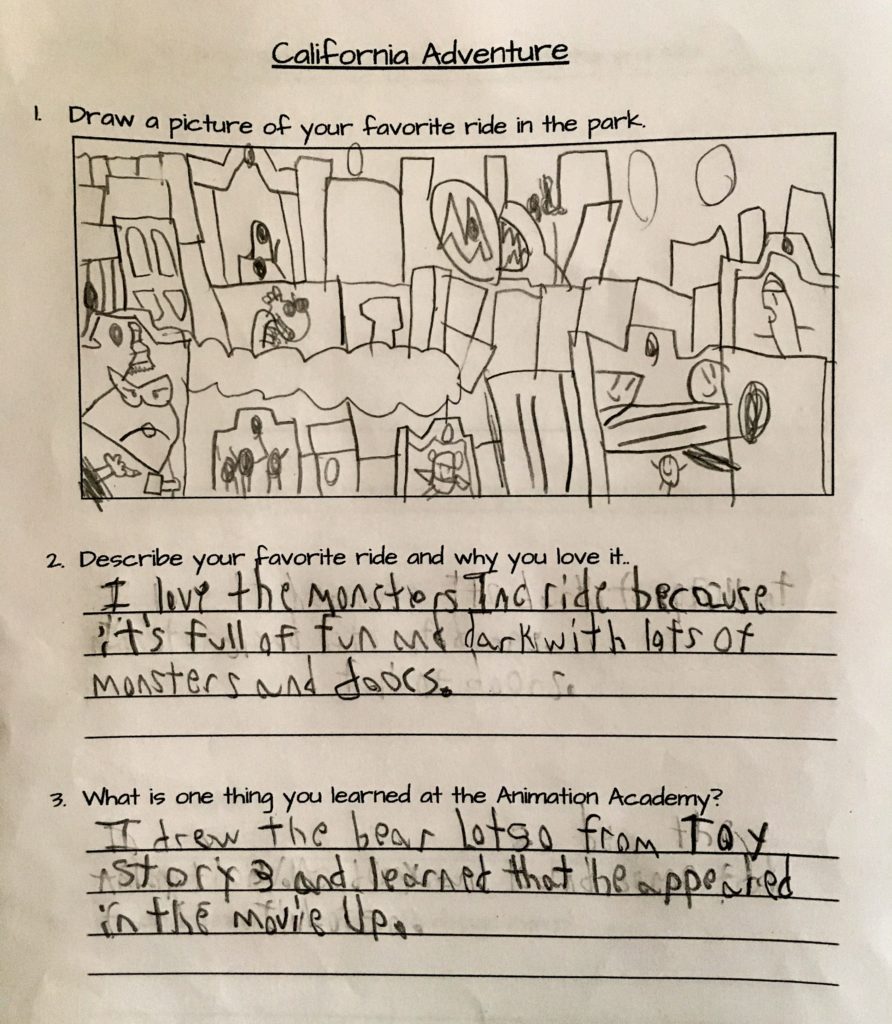 California Adventure
1. Draw a picture of your favorite ride in the park.
2. Describe your favorite ride and why you love it..
I love the monsters Inc ride because
it's full of fun and dark with lots of
monsters and doors.
3. What is one thing you learned at the Animation Academy?
I drew the bear lotso from Toy
Story 3 and learned that he appeared
in the movie Up.